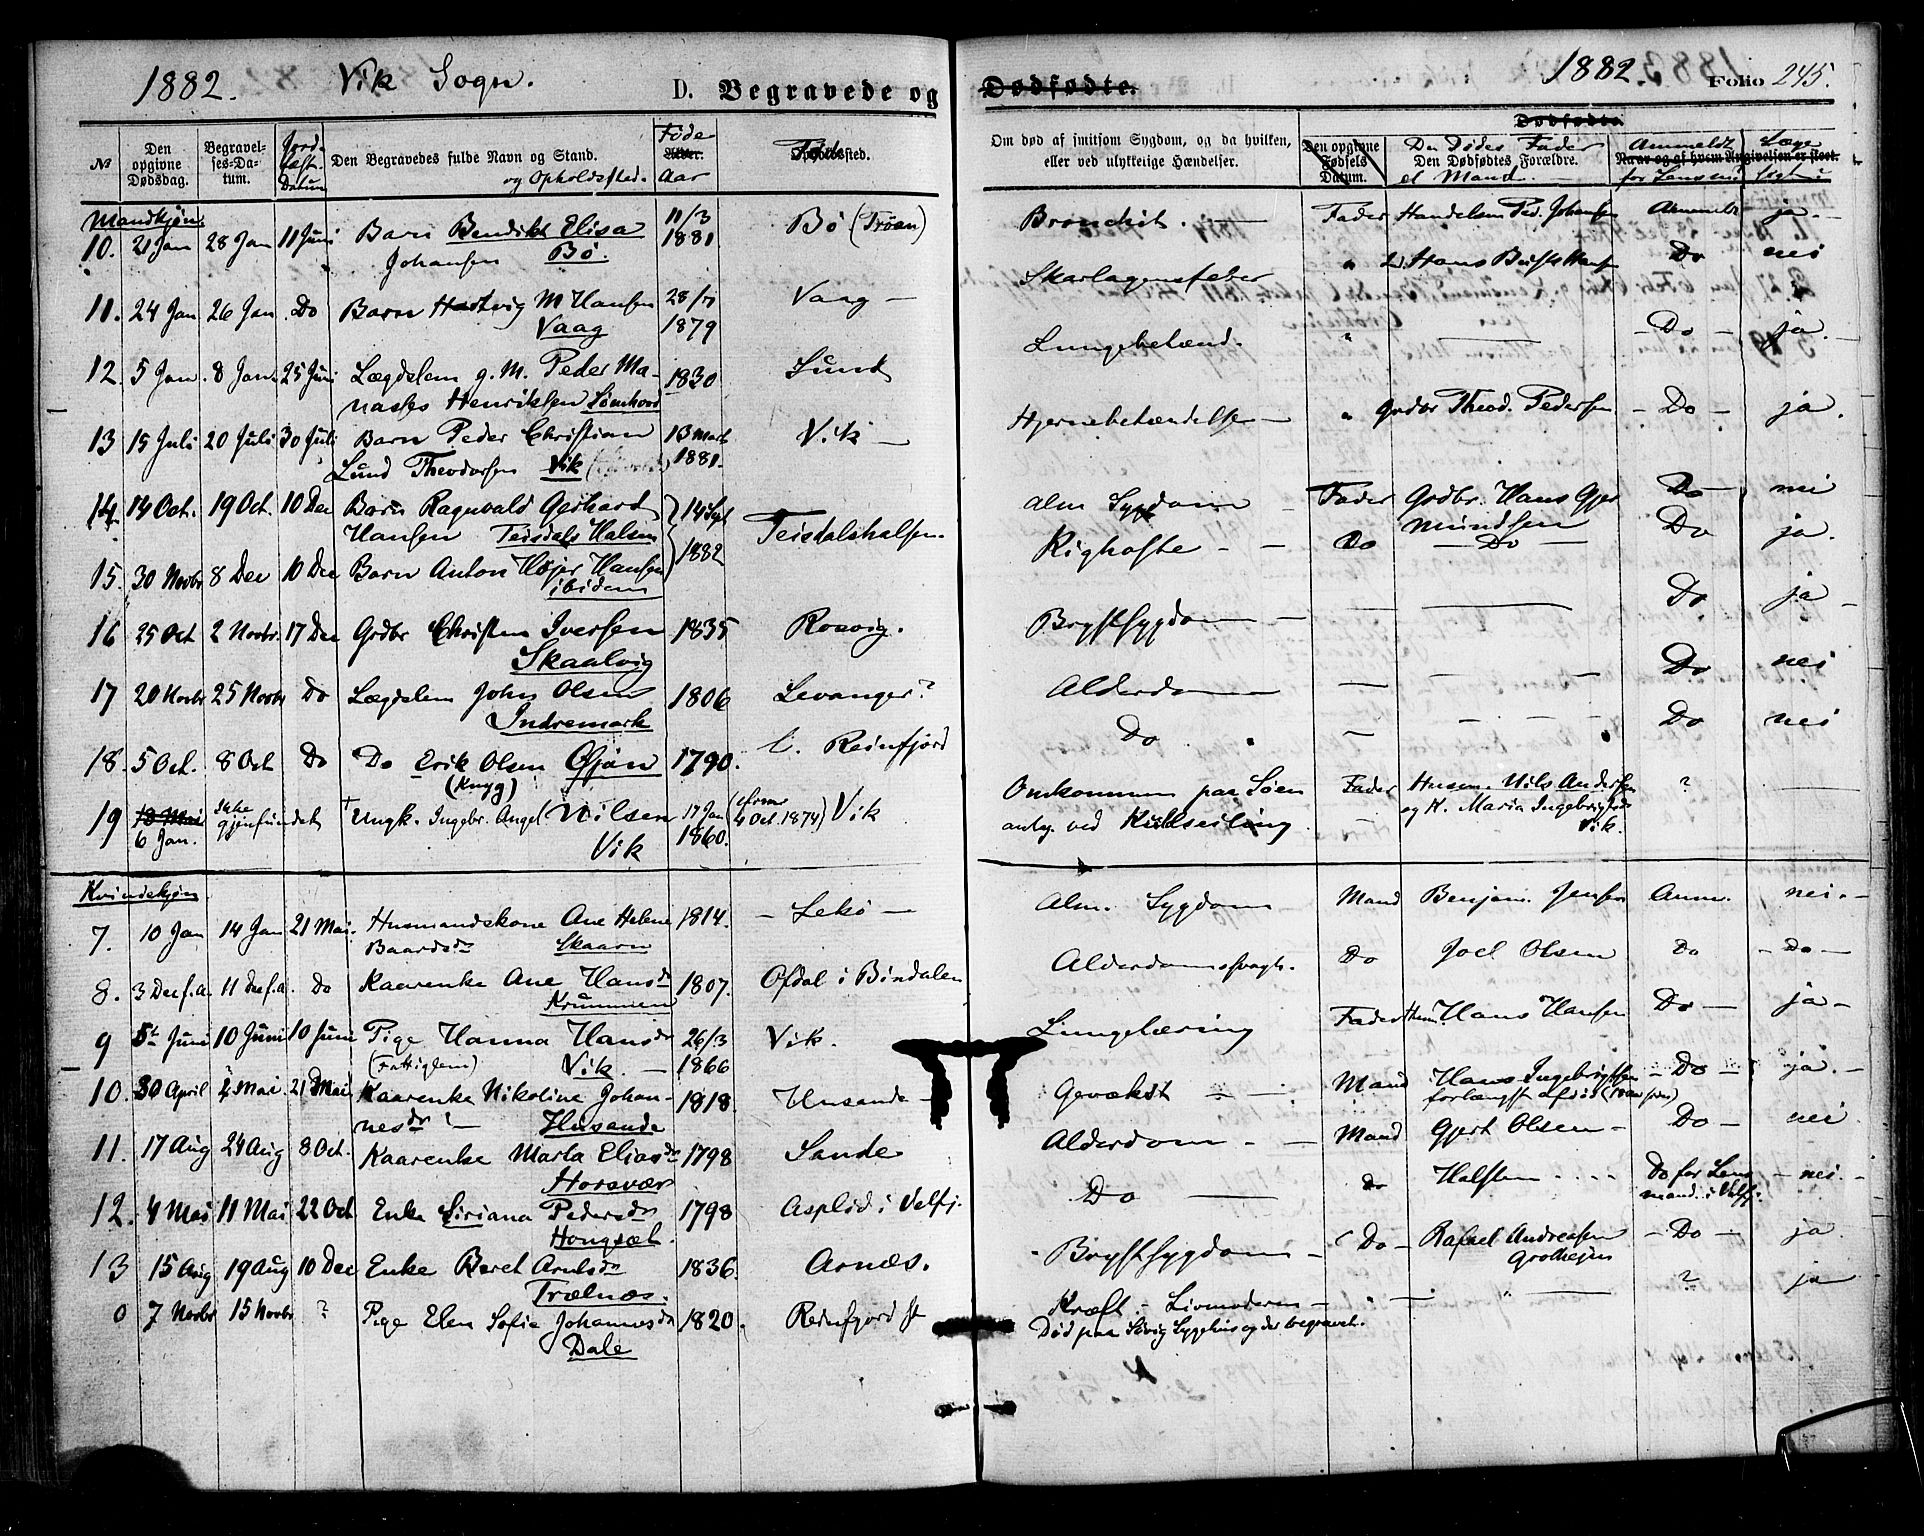 1882. Vik Sogn. D. Begravede og Dødfødte. 1882. Folio 245.
№ Den opgivne Dødsdag. Begravelses-Datum. Jordfæst. Datum Den Begravedes fulde Navn og Stand. og Opholdssted. Føde Alder. Aar Føde sted.
Om død af smitsom Sygdom, og da hvilken, eller ved ulykkelige Hændelser. Dødfødte. Den opgivne Fødsels Datum. Den Dødes Fader Den Dødfødtes Forældre. el Mand. Anmeldt Naar og af hvem Angivelsen er skeet. for Lensm. Læge søgt?
Mandkjøn.
10. 21 Jan 28 Jan 11 Juni Barn Bendikt Elisa 11/3 1881 Bø (Troan) Bronchit. Fader Handelsm Ped. Johansen Anmeldt ja.
Johansen Bø.
11. 24 Jan 26 Jan Do Barn Hartvig M Hansen 28/11 1879 Vaag Skarlagensfeber " Hans Do nei
Vaag
12. 5 Jan. 8 Jan. 25 Juni Lægdelem g. M. Peder Ma- 1830 Lund Lungebetænd. " Do ja.
nasses Henriksen Sømhovd
13 15 Juli 20 Juli 30 Juli Barn Peder Christian 13 Marts 1881. Vik Hjernebetændelse " Grdbr Theod. Pedersen Do ja.
Lund Theodorsen Vik
14. 14 Oct. 19 Oct. 10 Dec Barn Ragnvald Gerhard 14 Sept 1882 Teisdalshalsen. alm Sygdom Fader Grdbr. Hans Gjer Do nei
Hansen Teisdals Halsen mundsen
15. 30 Novbr 8 Dec 10 Dec Barn Anton Højer Hansen Kighoste Do Do Do ja.
ibidem
16 25 Oct 2 Novbr. 17 Dec Grdbr Christen Iversen 1835 Roevig. Brystsygdom Do ja
Skaalvig
17 20 Novbr 25 Novbr Do Lægdelem John Olsen 1806 Levanger? Alderdom Do nei
Indremark
18. 5 Oct. 8 Oct Do Do Erik Olsen Gjøn 1790. i. Reinfjord Do Do nei
(Knyg)
19 18 Mai 6 Jan. ikke gjenfundet † Ungk. Ingebr. Angel Nilsen 17 Jan 1860. ( 4 Oct. 1874) Vik Omkommen paa Søen Fader Husm. Nils Andersen ?
Vik antag. ved Kulseiling og H. Maria Ingebrigtsdr
Vik.
Kvindekjøn
7. 10 Jan 14 Jan 21 Mai. Husmandskone Ane Helene 1814. Lekø Alm. Sygdom Mand Benjam. Jensen Anm. nei.
Baardsdr Skaarn
8. 3 Dec f.a. 11 Dec f.a. Do Kaarenke Ane Hansdr 1807. Øfdal i Bindalen Alderdomssvagh. Do Joel Olsen Do Do
Krummen
9 5te Juni 10 Juni 10 Juni Pige Hanna Hansdr 26/3 1866 Vik. Lungetæring Fader Husm. Hans Hansen Do ja
(Fattiglem) Vik.
10. 30 April 4 Mai 21 Mai Kaarenke Nikoline Johan- 1818. Husande Gevækst Mand Hans Ingebrigtsen Do ja.
nesdr Husande forlængst afdød
11. 17 Aug 24 Aug 8 Oct. Kaarenke Marta Eliasdr 1798 Sande Alderdom Mand Gjert Olsen Do nei
Horsvær
12. 4 Mai 11 Mai 22 Oct Enke Siriana Pedersdr 1798 Asplid i Velfj. Do do Halsten Do for Lensmand. i Velfj. nei.
Hongsæt.
13 15 Aug 19 Aug 10 Dec Enke Beret Arntsdr 1836. Arnæs. Brystsygdom Do Rafael Andreasen Do ja
Trælnæs. Grotheim
0 7 Novbr 15 Novbr ? Pige Elen Sofie Johannesdr 1820. Reinfjord Kræft i Livmoderen " " ? ja
Dale Død paa Søvig Sygehus og der begravet.